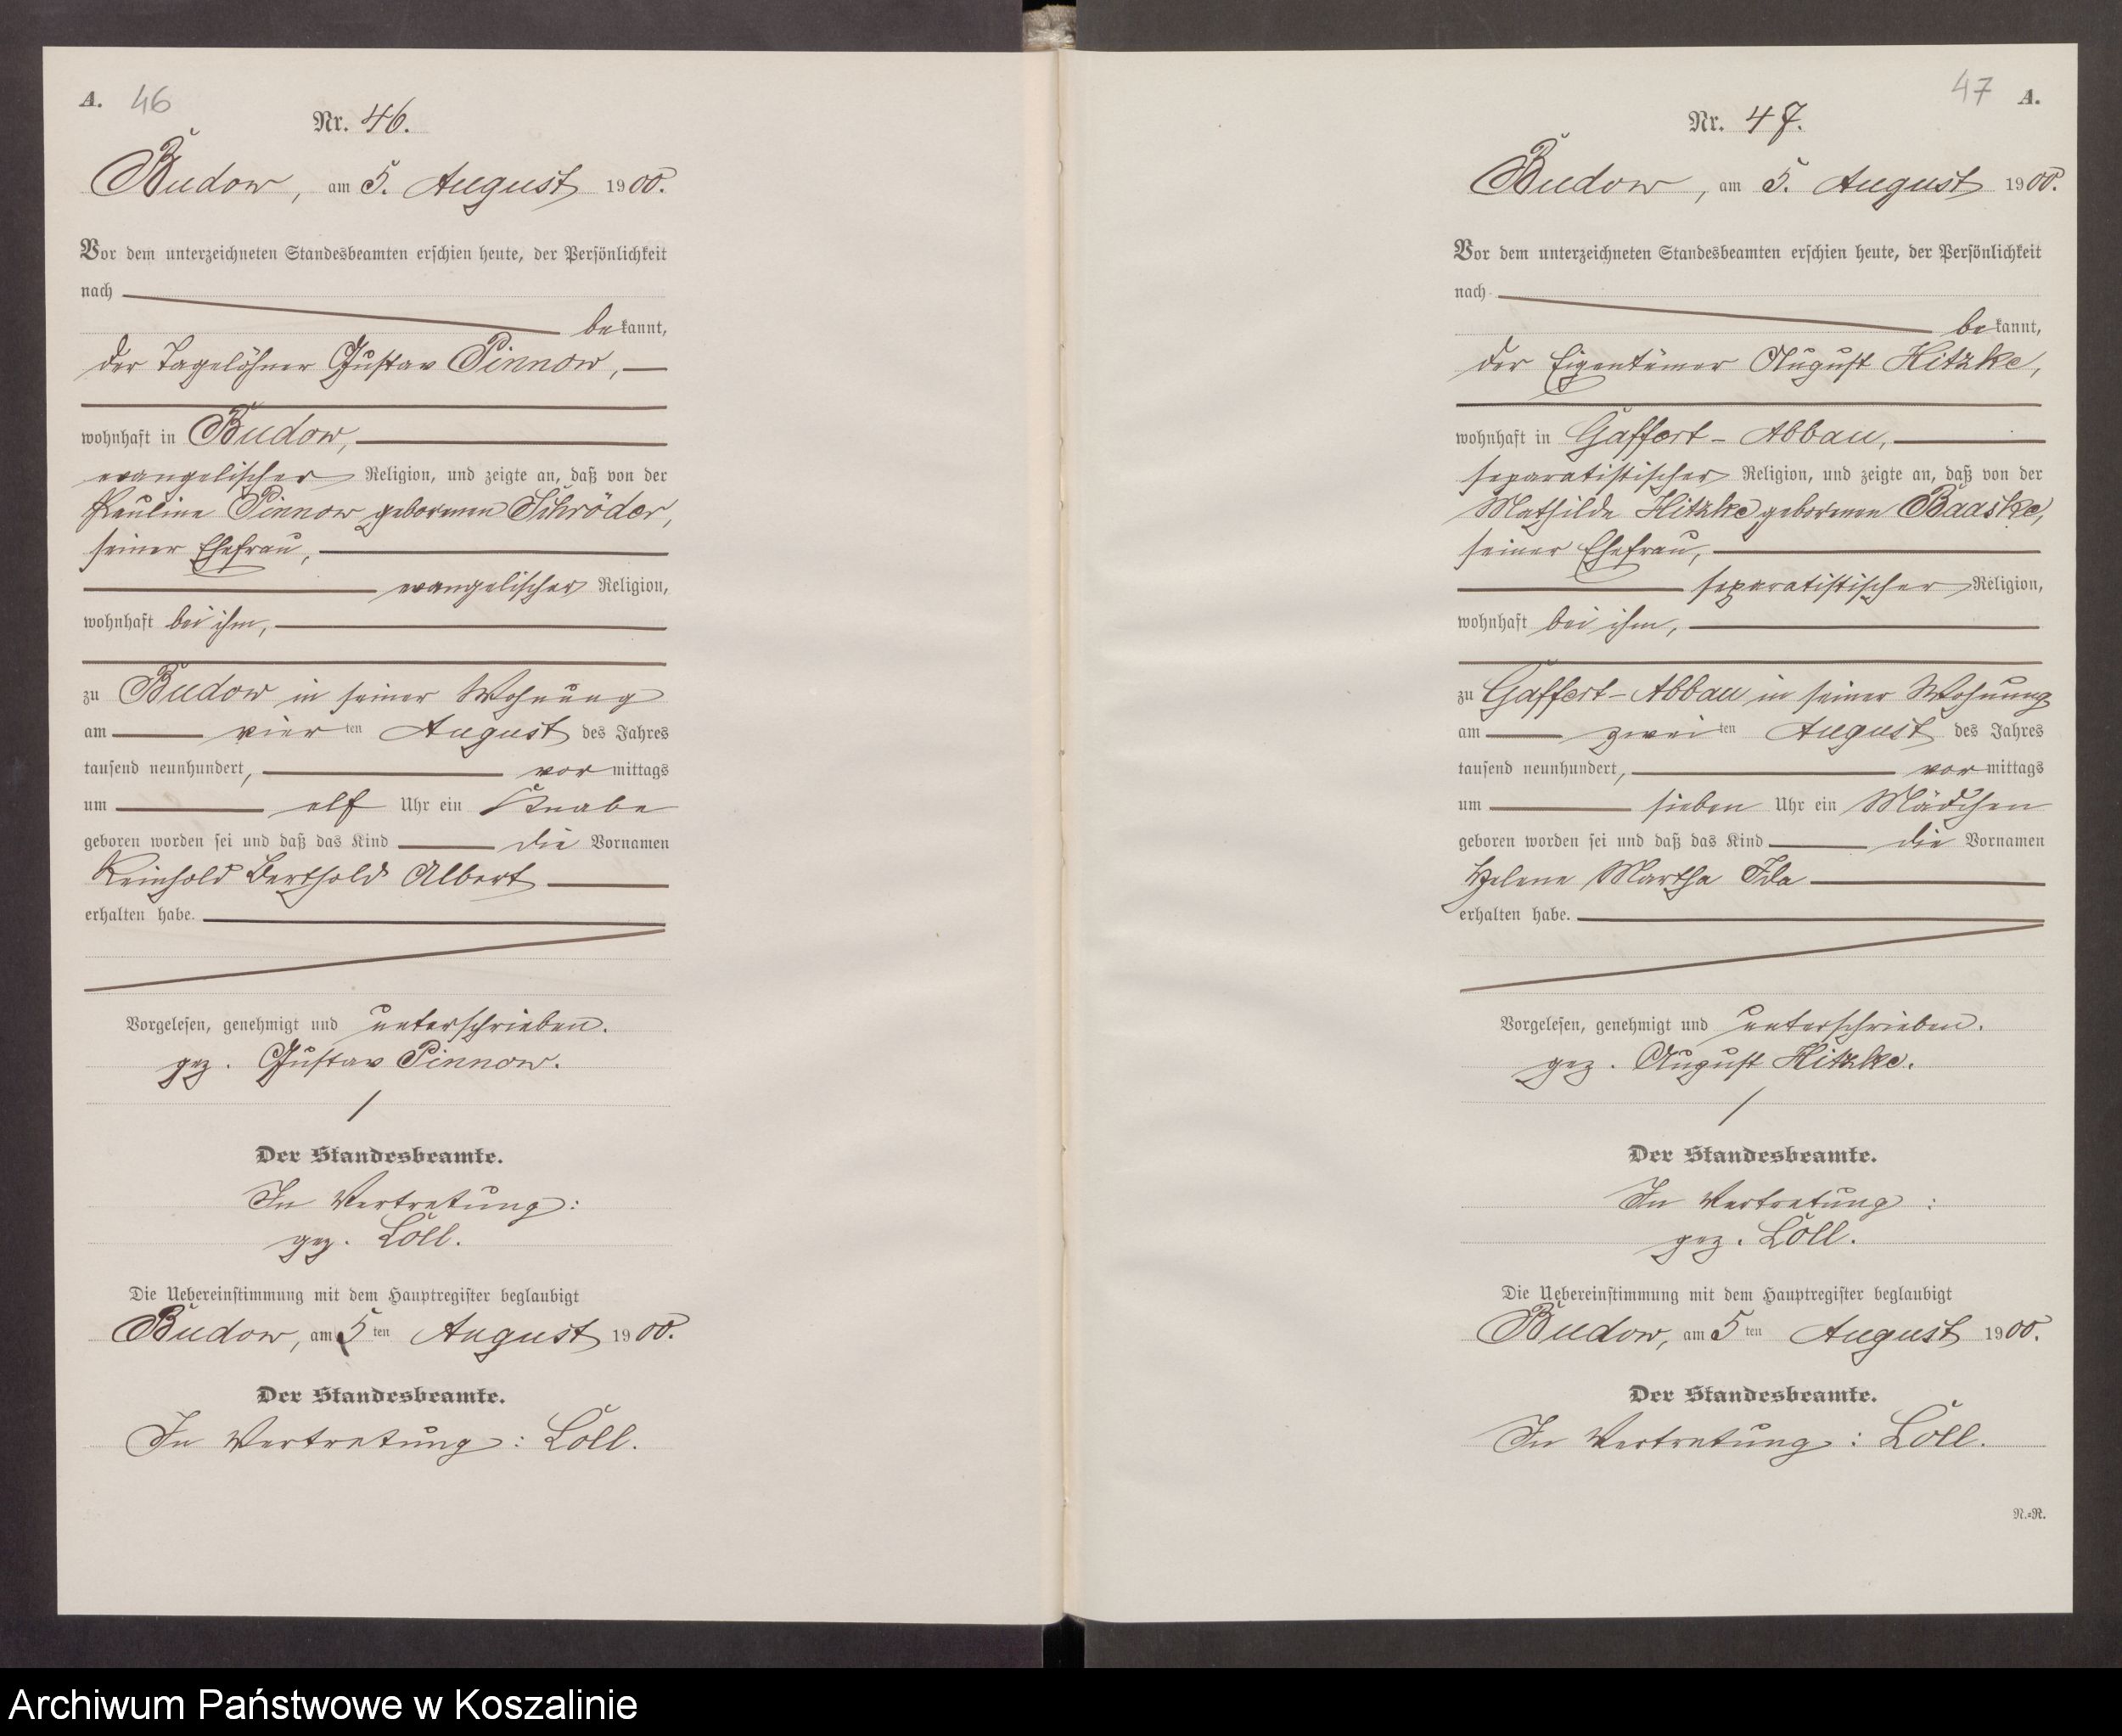 A. 46
Nr. 46.
Budow, am 5. August 1900.
Vor dem unterzeichneten Standesbeamten erschien heute, der Persönlichkeit
nach
bekannt,
der Tagelöhner Gustav Pinnow,
wohnhaft in Budow,
evangelischer Religion, und zeigte an, daß von der
Pauline Pinnow geborenen Schröder,
seiner Ehefrau,
evangelischer Religion,
wohnhaft bei ihm,
zu Budow in seiner Wohnung
am vier ten August des Jahres
tausend neunhundert, vor mittags
um elf Uhr ein Knabe
geboren worden sei und daß das Kind die Vornamen
Reinhold Berthold Albert
erhalten habe.
Vorgelesen, genehmigt und unterschrieben.
gez. Gustav Pinnow.
Der Standesbeamte.
In Vertretung:
gez. Löll.
Die Uebereinstimmung mit dem Hauptregister beglaubigt
Budow, am 5 ten August 1900.
Der Standesbeamte.
In Vertretung: Löll.
47 A.
Nr. 47.
Budow, am 5. August 1900.
Vor dem unterzeichneten Standesbeamten erschien heute, der Persönlichkeit
nach
bekannt,
der Eigentümer August Hitzke,
wohnhaft in Gaffert-Abbau,
separatistischer Religion, und zeigte an, daß von der
Mathilde Hitzke geborenen Baaske,
seiner Ehefrau,
separatistischer Religion,
wohnhaft bei ihm,
zu Gaffert-Abbau in seiner Wohnung
am zwei ten August des Jahres
tausend neunhundert, vor mittags
um sieben Uhr ein Mädchen
geboren worden sei und daß das Kind die Vornamen
Helene Martha Ida
erhalten habe.
Vorgelesen, genehmigt und unterschrieben.
gez. August Hitzke.
Der Standesbeamte.
In Vertretung:
gez. Löll.
Die Uebereinstimmung mit dem Hauptregister beglaubigt
Budow, am 5 ten August 1900.
Der Standesbeamte.
In Vertretung: Löll.
N.=R.
Archiwum Państwowe w Koszalinie